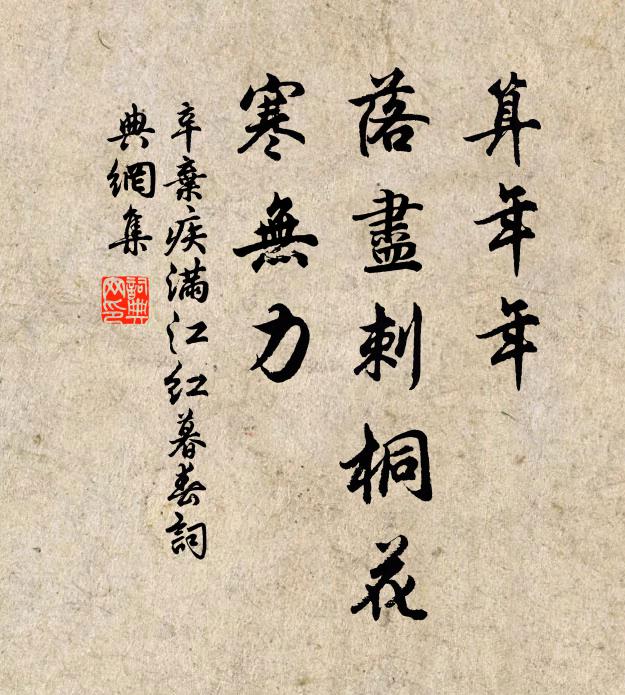 算年年
落盡刺桐花
寒無力
辛棄疾滿江紅暮春詞
典網集
詞典
网印